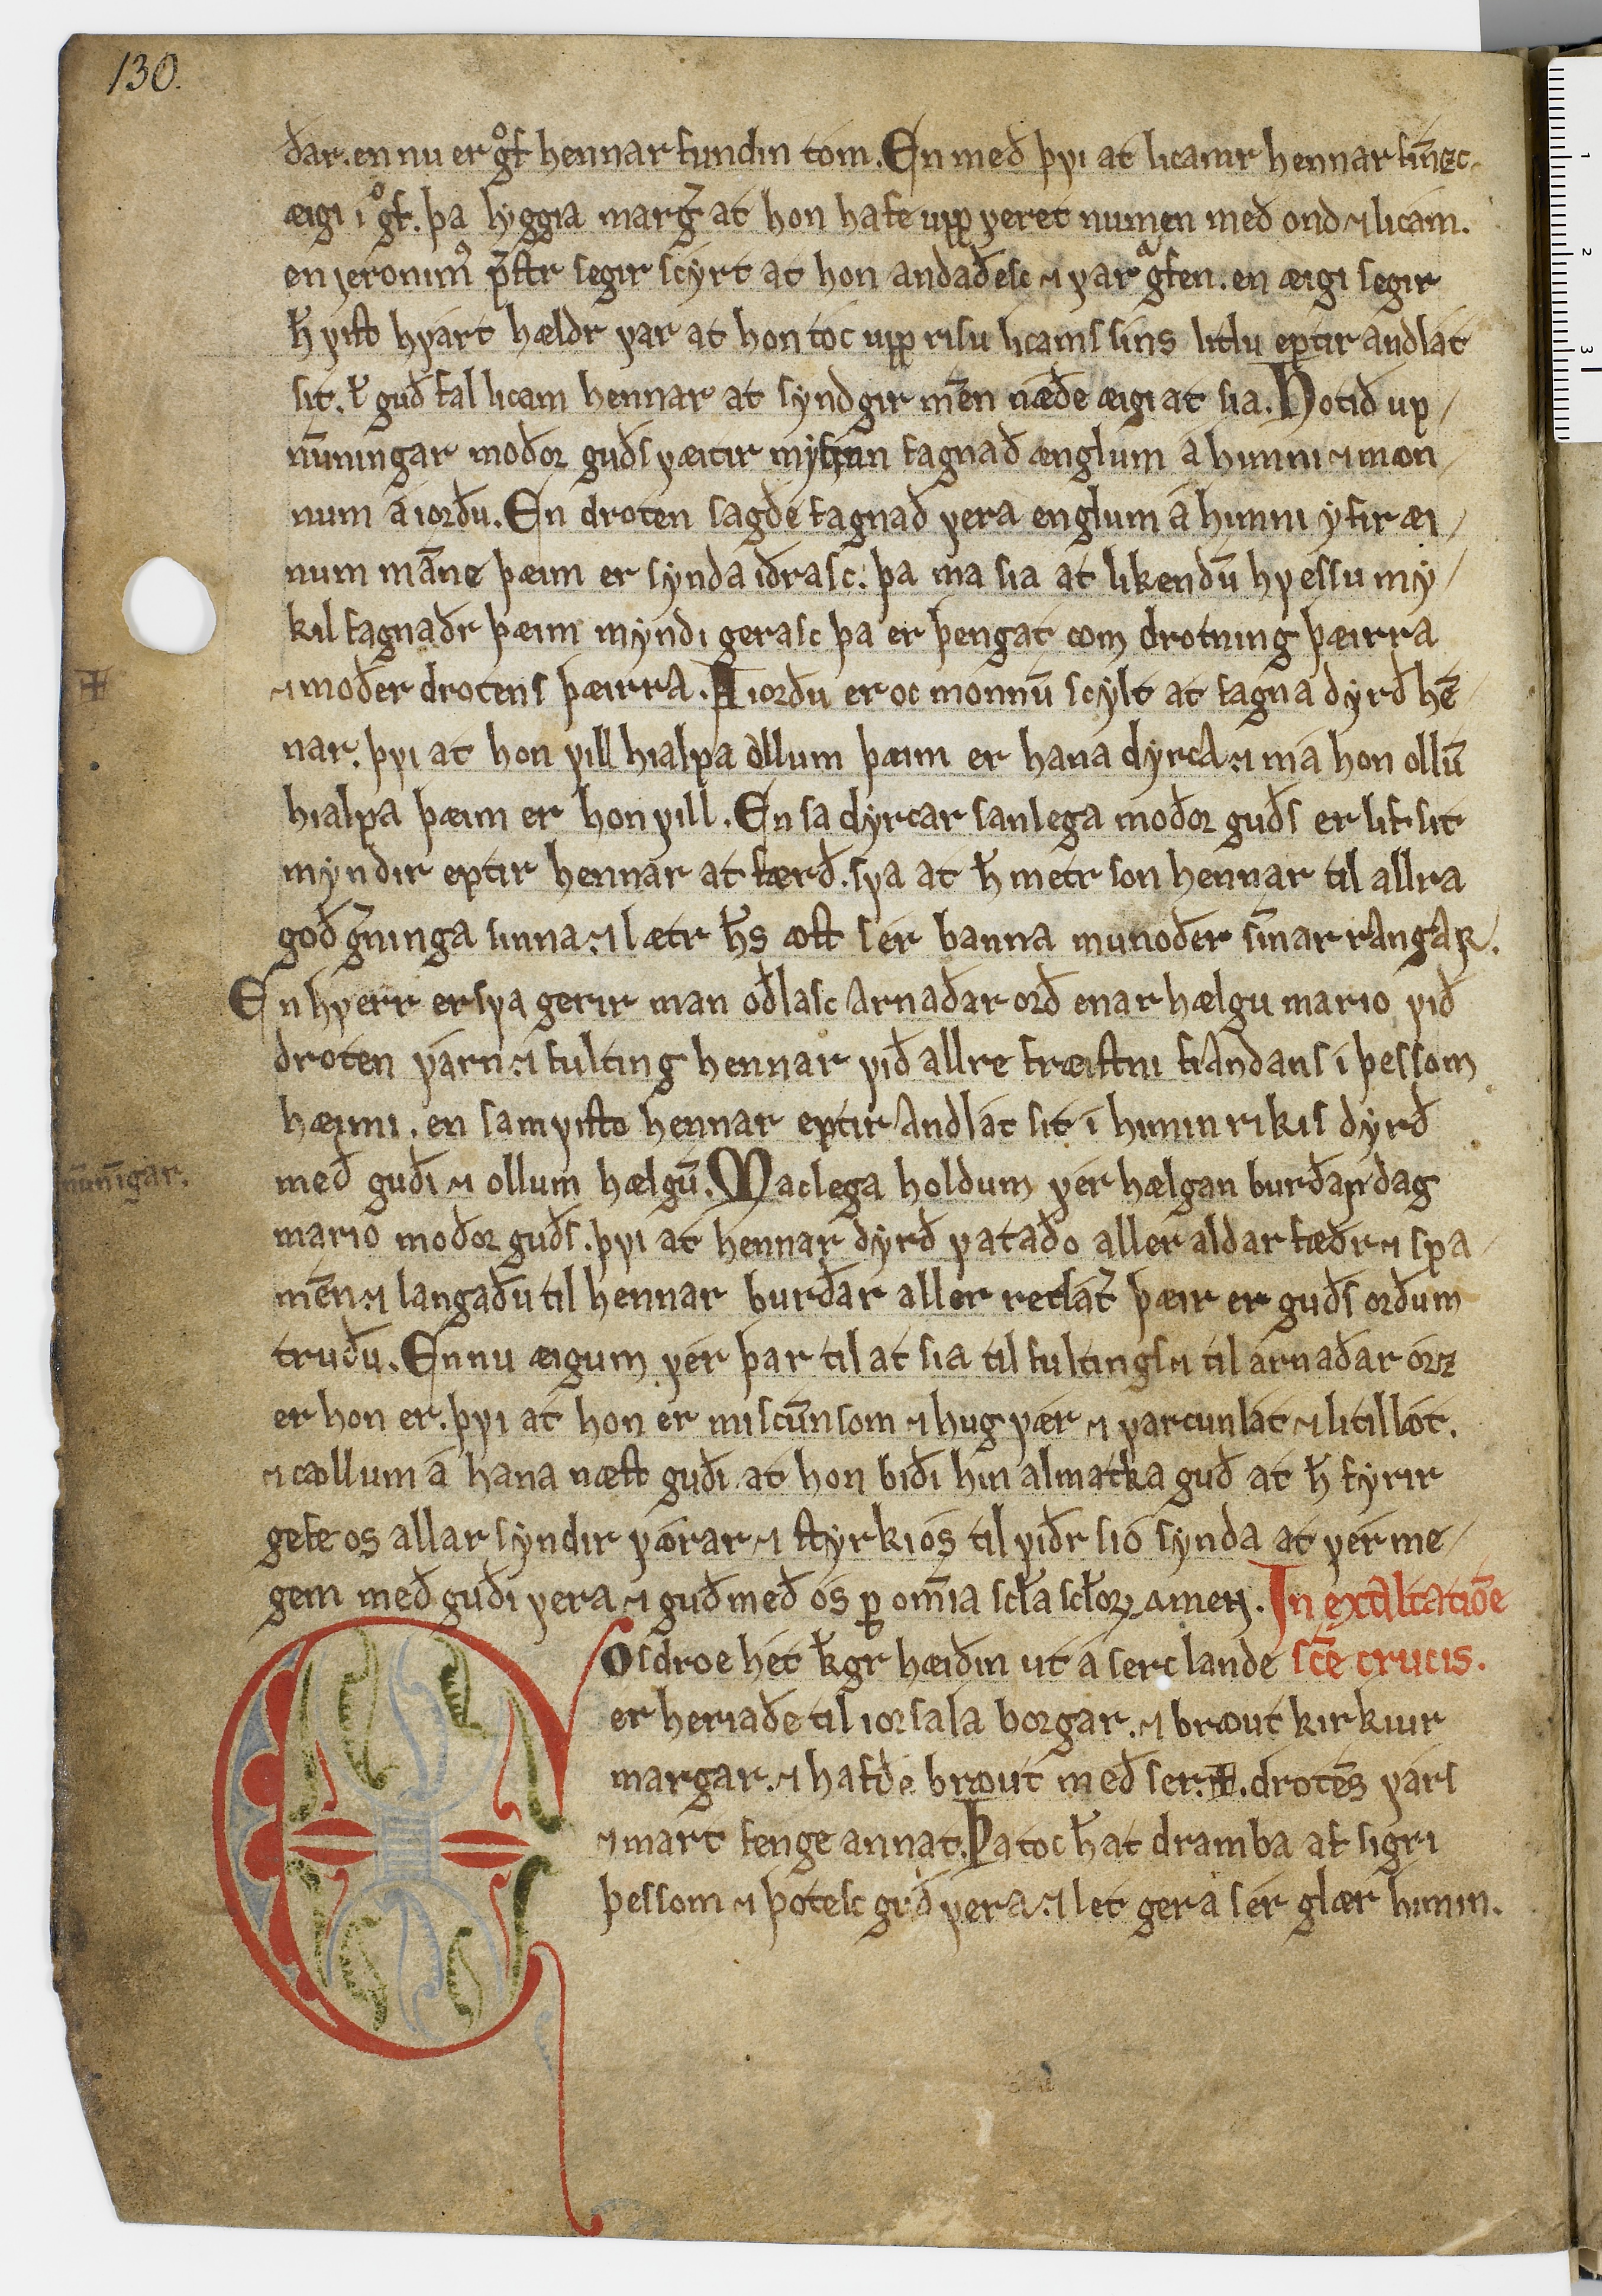 130.
ðar. en nu er gͦf hennar fundin tom. En með þvi at licamr hennar fin̄ezc
æigi i gͦf. þa hyggia marg͛ at hon hafe upp veret numen með ond ⁊ licam.
en ieronim᷒ p͛str segir scyrt at hon andaðesc ⁊ var gͣfen. en æigi segir
h̄ vist hvárt hældr var at hon toc upp risu licams sins litlu eptir andlát
sit. ł guð fal licam hennar at syndgir men̄ næðe æigi at sia. Hotið up
nūningar moðor guðs væitir mykin fagnað ænglum a himni ⁊ mon
num a iorðu. En droten sagðe fagnað vera englum a himni yfir æi
num man̄e þæim er synda iðrasc. þa ma sia at likendū hvessu my
kil fagnaðr þæim myndi gerasc þa er þengat com drotning þæirra
⁊ moðer drotens þæirra. A iorðu er oc monnū scylt at fagna dyrð hen̄
nar. þvi at hon vill hialpa ollum þæim er hana dyrca. ⁊ ma hon ollū
hialpa þæim er hon vill. En sa dyrcar sanlega moðor guðs er lif sit
myndir eptir hennar at færð. sva at h̄ metr son hennar til allra
goð g͛ninga sinna. ⁊ lætr h̄s ost sér banna munoðer sin̄ar rangar.
En hverr er sva gerir man oðlasc arnaðar orð ennar hælgu mario við
droten várn. ⁊ fulting hennar við allre fræistni fiandans i þessom
hæimi. en samvisto hennar eptir andlát sit i himinrikis dyrð
nūnīgar.
með guði ⁊ ollum hælgū. Maclega holdum vér hælgan burðar dag
mario moðor guðs. þvi at hennar dyrð vataðo aller aldar fæðr ⁊ spa
men̄. ⁊ langaðu til hennar burðar aller retlát͛ þæir er guðs orðum
truðu. En nu æigum vér þar til at sia til fultings ⁊ til árnaðar órz
er hon er. þvi at hon er miscun̄som ⁊ hugvær ⁊ varcunlát ⁊ litillót.
⁊ collum a hana næst guði at hon biði hin almatka guð at h̄ fyrir
gefe os allar syndir vórar ⁊ styrki os til viðr sio synda at vér me
gem með guði vera ⁊ guð með os ꝑ om̄ia scła scłoꝝ amen. In exaltatiōe
sc̄e crucis.
Cosdroe hét kgr hæiðin ut a serclande
er heriaðe til iorsala borgar. ⁊ brout kirkiur
margar. ⁊ hafðe brout með ser. ✠. droten̄s várs
⁊ mart fenge annat. Þa toc h̄ at dramba af sigri
þessom ⁊ þotesc guð vera. ⁊ let gera sér glær himin.